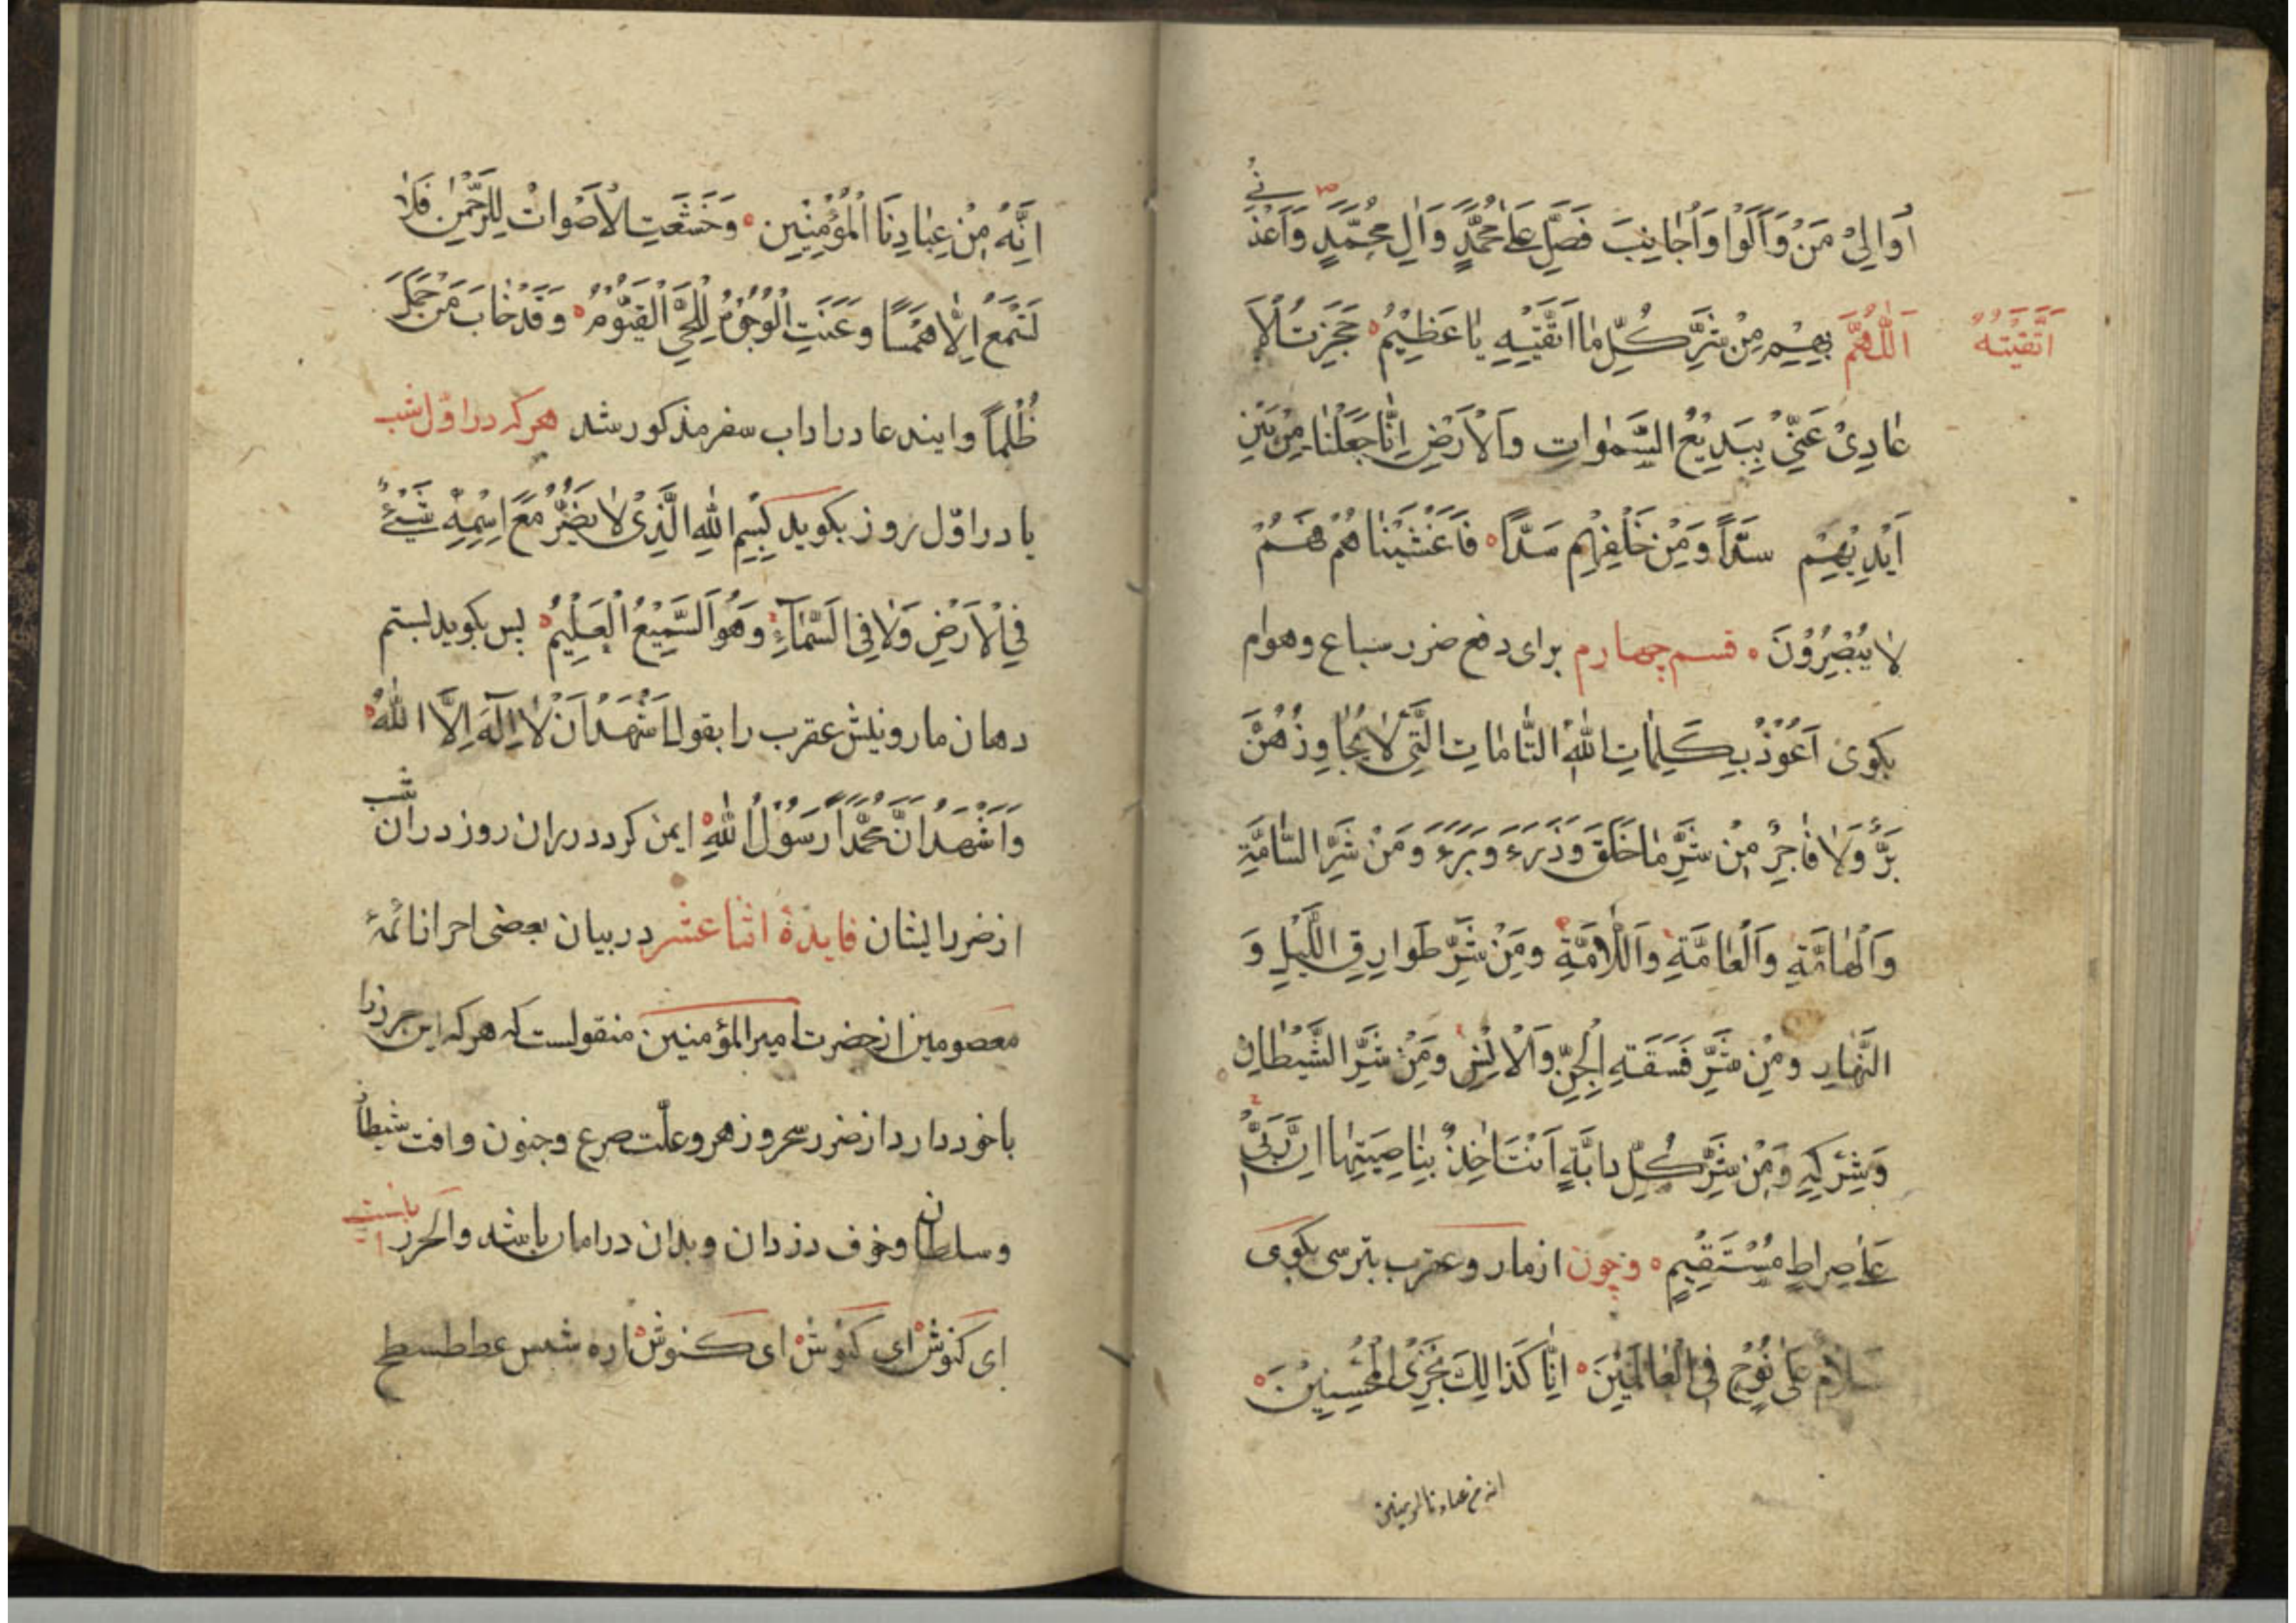 اُوالِىْ مَنْ وَآلَوْا وَاُجانِبَ فَصَلِّ عَلىٰ مُحَمَّدٍ وَآلِ مُحَمَّدٍ وَاَعِذْنى
اَللّٰهُمَّ بِهِمْ مِنْ شَرِّ كُلِّ ما اَتَّقيْهِ يا عَظِيْمُ حَجَزْتُ الْاَ
اَتَّقيْتُهُ
عادِىْ عَنّىْ بِبَدِيْعُ السَّمٰواتِ وَالْاَرْضِ اِنَّا جَعَلْنا مِنْ بَيْنِ
اَيْدِيْهِمْ سَدًّا وَمِنْ خَلْفِهِمْ سَدًّا فَاَغْشَيْناهُمْ فَهُمْ
لا يُبْصِرُوْنَ قسم چهارم براى دفع ضرر سباع وهوام
بكوى اَعُوْذُ بِكَلِماتِ اللّٰهِ التَّاماتِ الَّتِىْ لا يُجاوِزُهُنَّ
بَرٌّ وَلا فاجِرٌ مِنْ شَرِّ ما خَلَقَ وَذَرَءَ وَبَرَءَ وَمِنْ شَرِّ السَّامَّةِ
وَالْهامَّةِ وَالْعامَّةِ وَاللّامَّةِ وَمِنْ شَرِّ طَوارِقِ اللَّيْلِ وَ
النَّهارِ وَمِنْ شَرِّ فَسَقَةِ الْجِنِّ وَالْاِنْسِ وَمِنْ شَرِّ الشَّيْطانِ
وَشِرْكِهِ وَمِنْ شَرِّ كُلِّ دابَّةٍ اَنْتَ اٰخِذٌ بِناصِيَتِها اِنَّ رَبّىْ
عَلىٰ صِراطٍ مُسْتَقِيْمٍ وچون از مار وعقرب بترسى بكوى
سَلامٌ عَلىٰ نُوْحٍ فِى الْعالَمِيْنَ اِنَّا كَذالِكَ نَجْزِى الْمُحْسِنِيْنَ
انه من عبادنا المومنين
اِنَّهُ مِنْ عِبادِنَا الْمُؤْمِنِيْنَ وَخَشَعَتِ الْاَصْواتُ لِلرَّحْمٰنِ فَلا
تَسْمَعُ اِلّا هَمْسًا وَعَنَتِ الْوُجُوْهُ لِلْحَىِّ الْقَيُّوْمُ وَقَدْ خابَ مَنْ حَمَلَ
ظُلْمًا وايندعا در اداب سفر مذكور شد هركه در اوّل شب
يا در اوّل روز بكويد بِسْمِ اللّٰهِ الَّذِىْ لا يَضُرُّ مَعَ اِسْمِهِ شَىْءٌ
فِى الْاَرْضِ وَلا فِى السَّمآءِ وَهُوَ السَّمِيْعُ الْعَلِيْمُ پس بكويد بستم
دهان مار ونيش عقرب را بقول اَشْهَدُ اَنْ لا اِلٰهَ اِلَّا اللّٰهُ
وَاَشْهَدُ اَنَّ مُحَمَّدًا رَسُوْلُ اللّٰهِ ايمن كردد دران روز دران شب
از ضرر ايشان فايدۀ اثنا عشر در بيان بعضى احراز ائمۀ
معصومين از حضرت امير المؤمنين منقولست كه هركه اين حرز را
با خود دارد از ضرر سحر وزهر وعلّت صرع وجنون وافت شيطان
وسلطان وخوف دزدان وبدان در امان باشد والحرز اينست
اى كنوش اى كنوش اى كنوش اره شسس عططسطح